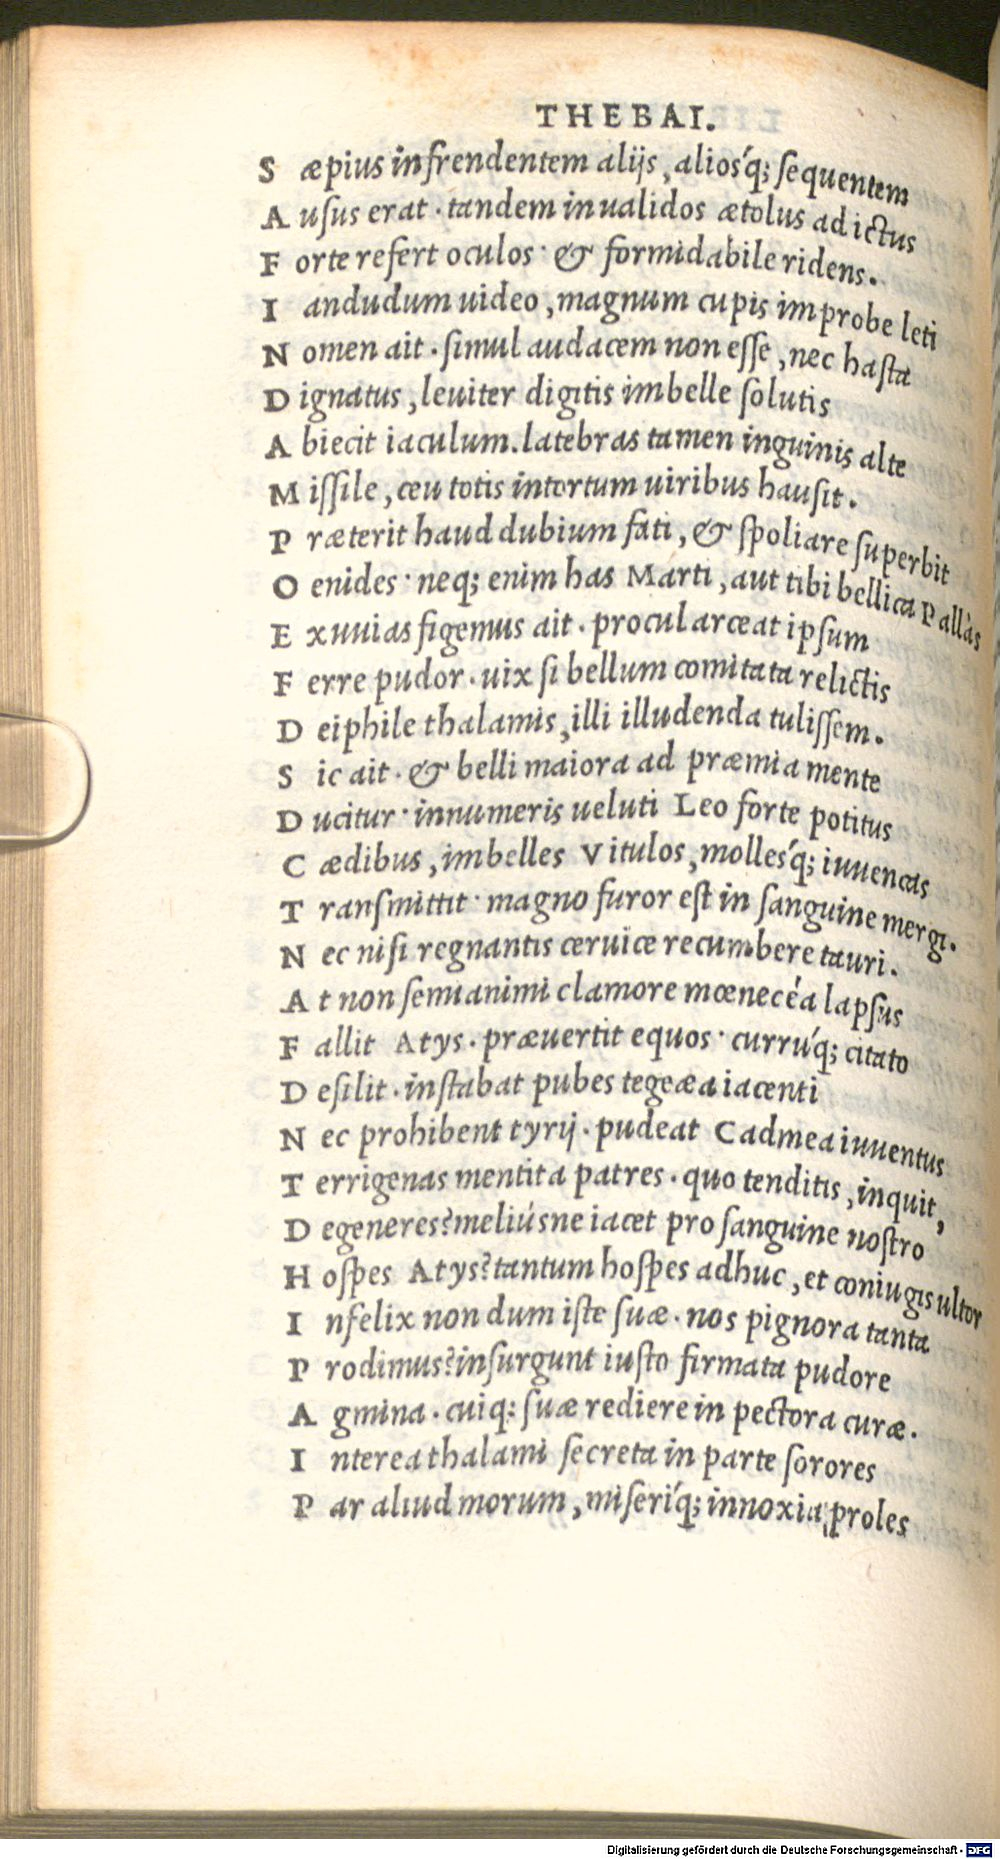 THEBAI.
S æpius infrendentem alijs, aliosq́; sequentem
A usus erat · tandem inualidos ætolus ad ictus
F orte refert oculos · & formidabile ridens.
I andudum uideo, magnum cupis improbe leti
N omen ait · simul audacem non esse, nec hasta
D ignatus, leuiter digitis imbelle solutis
A biecit iaculum. latebras tamen inguinis alte
M issile, ceu totis intortum uiribus hausit.
P ræterit haud dubium fati, & spoliare superbit
O enides · neq; enim has Marti, aut tibi bellica Pallàs
E xuuias figemus ait · procul arceat ipsum
F erre pudor · uix si bellum comitata relictis
D eiphile thalamis, illi illudenda tulissem.
S ic ait · & belli maiora ad præmia mente
D ucitur · innumeris ueluti Leo forte potitus
C ædibus, imbelles Vitulos, mollesq́; iuuencas
T ransmittit · magno furor est in sanguine mergi.
N ec nisi regnantis ceruice recumbere tauri.
A t non semianimi clamore mœnecéa lapsus
F allit Atys · præuertit equos · curruq́; citato
D esilit · instabat pubes tegeæa iacenti
N ec prohibent tyrij · pudeat Cadmea iuuentus
T errigenas mentita patres · quo tenditis, inquit,
D egeneres? meliúsne iacet pro sanguine nostro
H ospes Atys? tantum hospes adhuc, et coniugis ultor
I nfelix non dum iste suæ · nos pignora tanta
P rodimus? insurgunt iusto firmata pudore
A gmina · cuiq; suæ rediere in pectora curæ.
I nterea thalami secreta in parte sorores
P ar aliud morum, miseriq́; innoxia, proles
Digitalisierung gefördert durch die Deutsche Forschungsgemeinschaft - DFG